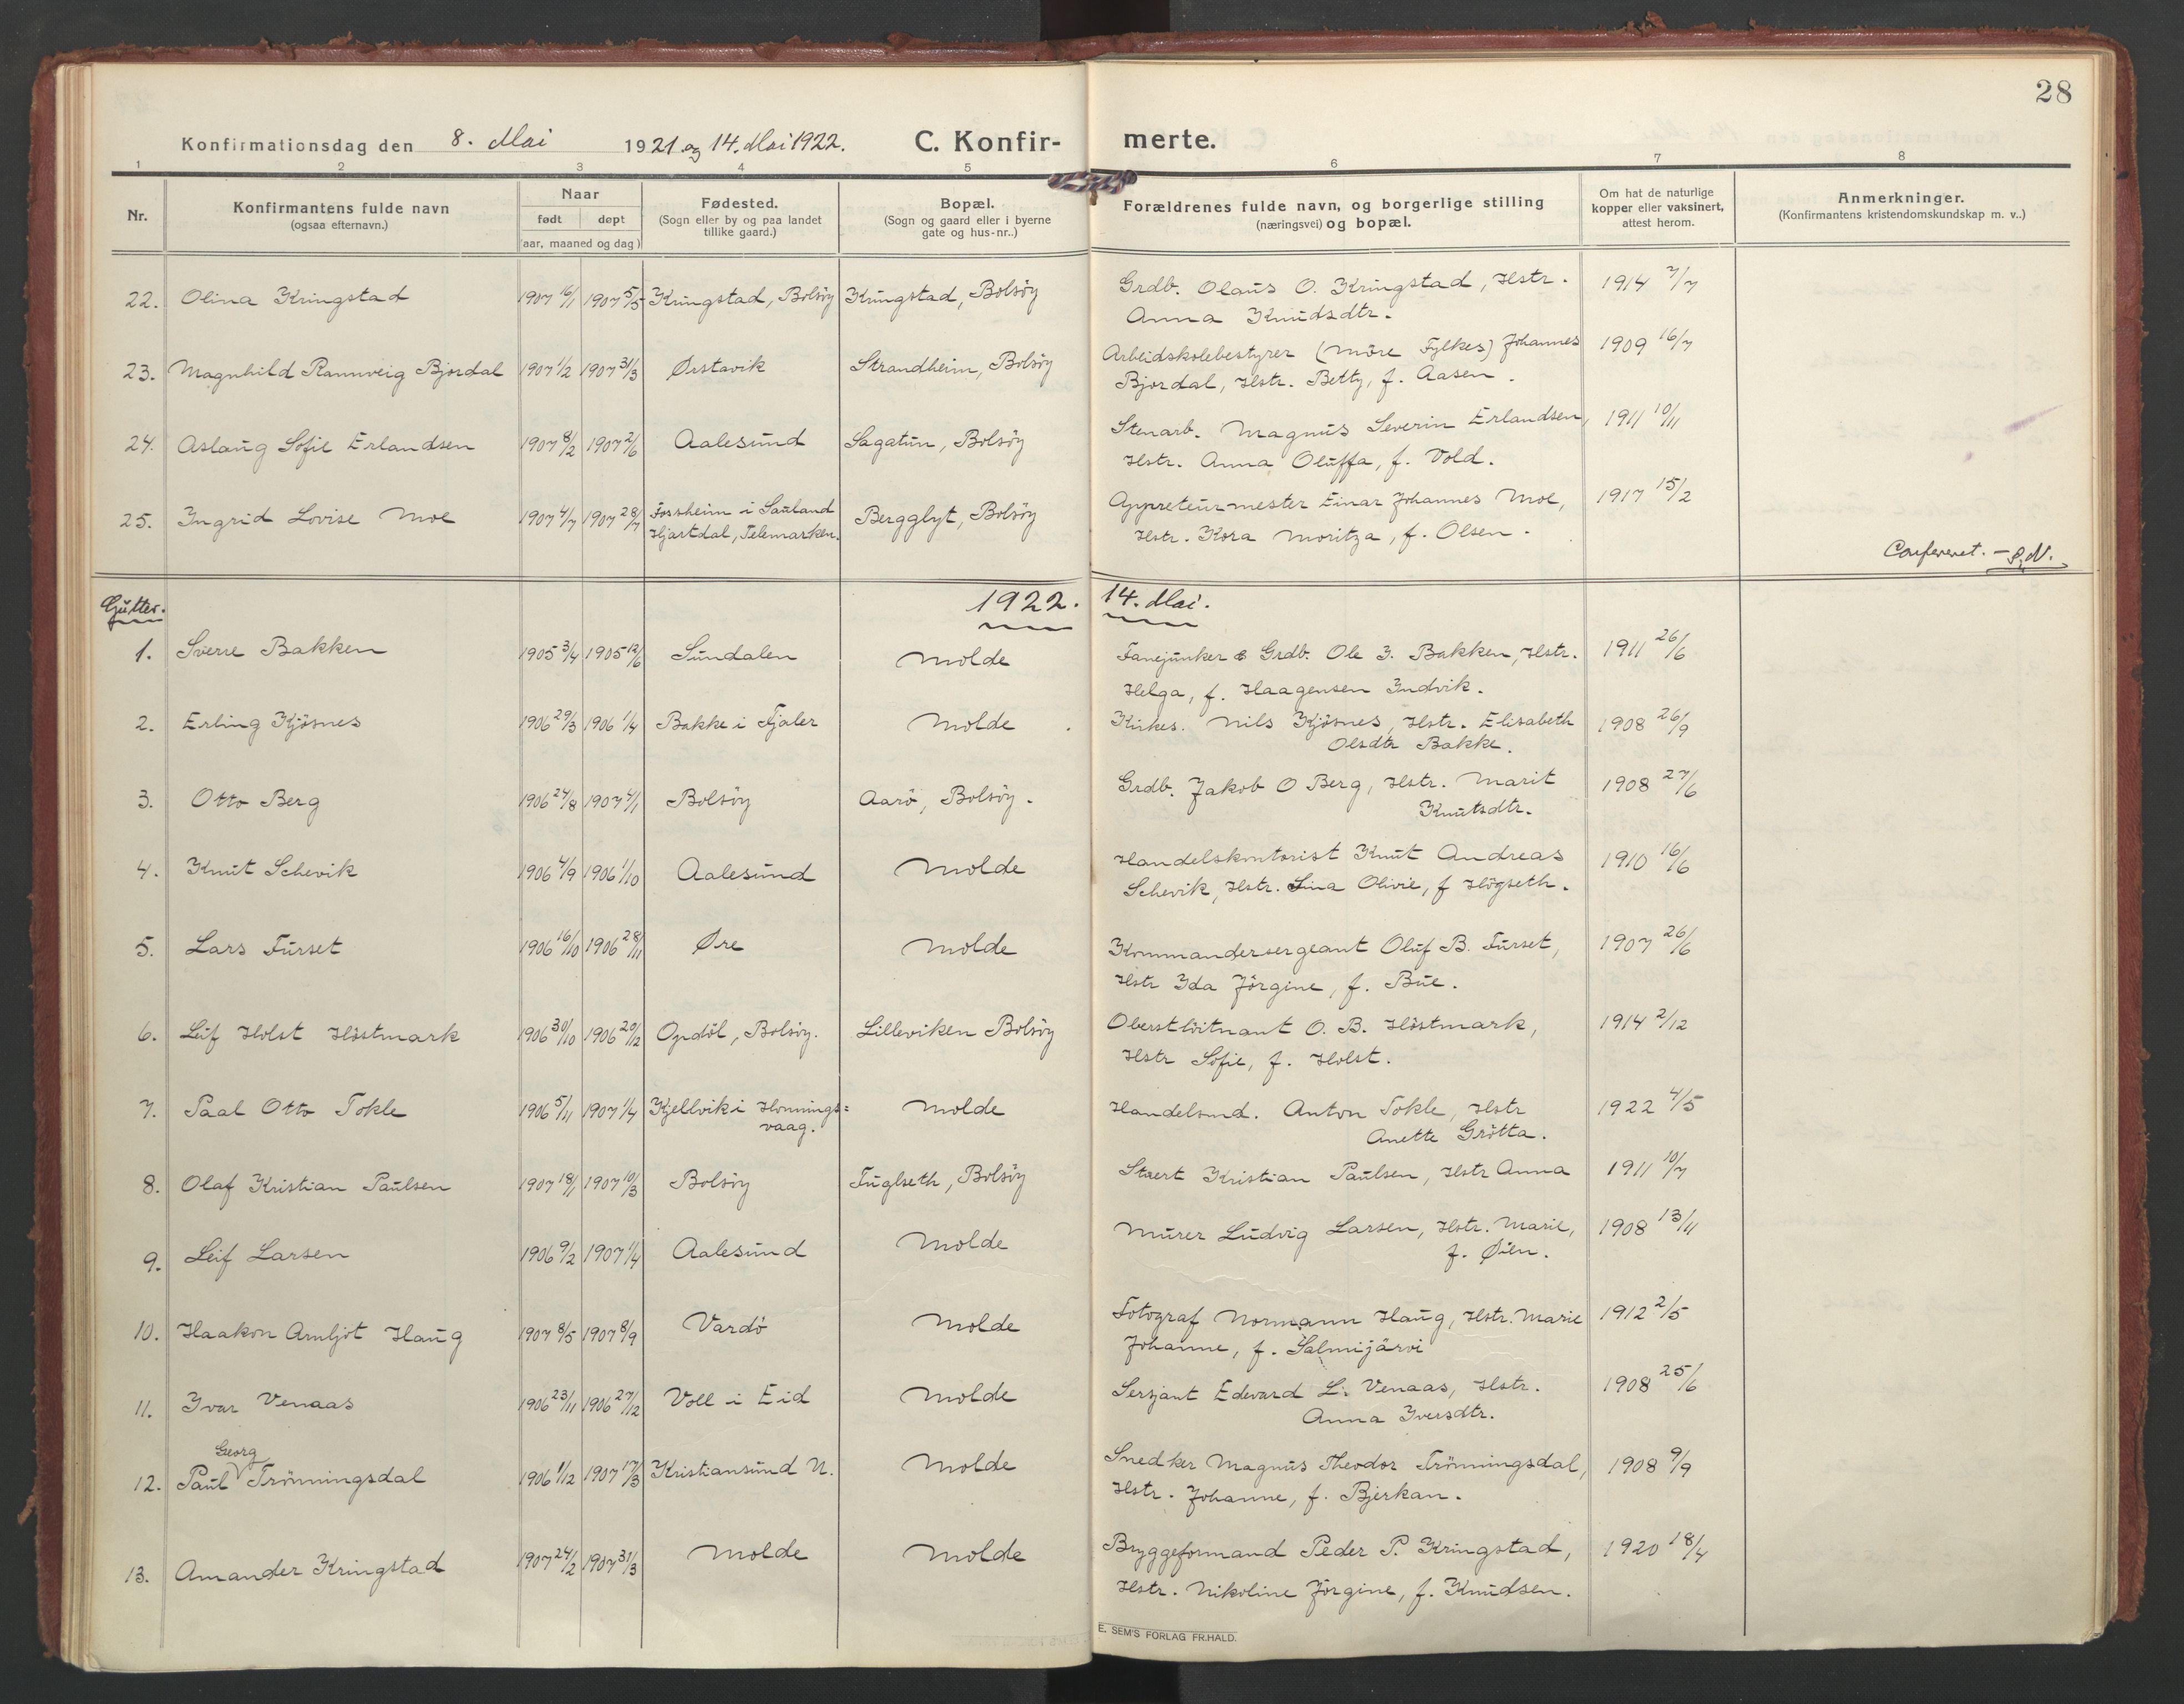 28
Konfirmationsdag den 8. Mai 1921 og 14. Mai 1922. C. Konfir- merte.
1 2 3 4 5 6 7 8
Nr.
Konfirmantens fulde navn
(ogsaa efternavn.)
Naar
født døpt
(aar, maaned og dag)
Fødested.
(Sogn eller by og paa landet
tillike gaard.)
Bopæl.
(Sogn og gaard eller i byerne
gate og hus-nr..)
Forældrenes fulde navn, og borgerlige stilling
(næringsvei) og bopæl.
Om hat de naturlige
kopper eller vaksinert,
attest herom.
Anmerkninger.
(Konfirmantens kristendomskundskap m. v..)
22. Olina Kringstad 1907 16/1 1907 5/5 Kringstad, Bolsöy Kringstad, Bolsöy Grdb. Olaus O. Kringstad, Hstr. 1914 7/7
Anna Knudsdtr.
23. Magnhild Rannveig Bjordal 1907 1/2 1907 31/3 Ørstavik Strandheim, Bolsöy Arbeidskolebestyrer (Möre Fylkes) Johannes 1909 16/7
Bjordal, Hstr. Betty, f. Aasen.
24. Aslaug Sofie Erlandsen 1907 8/2 1907 2/6 Aalesund Sagatun, Bolsöy Stenarb. Magnus Severin Erlandsen, 1911 10/11
Hstr. Anna Oluffa, f. Vold.
25. Ingrid Lovise Moe 1907 4/7 1907 28/7 Fossheim i Sauland Bergglyt, Bolsöy Appreteurmester Einar Johannes Moe, 1917 15/2
Hjartdal, Telemarken. Hstr. Kora Moritza, f. Olsen.
Confereret.
Gutter. 1922. 14. Mai.
1. Sverre Bakken 1905 3/4 1905 12/6 Sundalen Molde Fanejunker & Grdb. Ole J. Bakken, Hstr. 1911 26/6
Helga, f. Haagensen Indvik.
2. Erling Kjösnes 1906 29/3 1906 1/4 Bakke i Fjaler Molde Kirkes. Nils Kjösnes, Hstr. Elisabeth 1908 26/9
Olsdtr Bakke.
3. Otto Berg 1906 24/8 1907 4/1 Bolsöy Aarö, Bolsöy. Grdb. Jakob O Berg, Hstr. Marit 1908 27/6
Knutsdtr.
4. Knut Schevik 1906 4/9 1906 1/10 Aalesund Molde Handelskontorist Knut Andreas 1910 16/6
Schevik, Hstr. Lina Olivie, f Högseth.
5. Lars Furset 1906 16/10 1906 28/11 Øre Molde Kommandersergeant Oluf B. Furset, 1907 26/6
Hstr Ida Jörgine, f. Bue.
6. Leif Holst Höstmark 1906 30/10 1906 20/12 Opdöl, Bolsöy. Lilleviken Bolsöy Oberstlöitnant O. B. Höstmark, 1914 2/12
Hstr Sofie, f. Holst.
7. Paal Otto Tokle 1906 5/11 1907 1/4 Kjellvik i Honnings= Molde Handelsmd. Anton Tokle, Hstr 1922 4/5
vaag. Anette Grötta.
8. Olaf Kristian Paulsen 1907 18/1 1907 10/3 Bolsöy Fuglseth, Bolsöy Stuert Kristian Paulsen, Hstr Anna 1911 10/7
9. Leif Larsen 1906 9/2 1907 1/4 Aalesund Molde Murer Ludvig Larsen, Hstr. Marie, 1908 13/11
f. Øien.
10. Haakon Arnljot Haug 1907 8/5 1907 8/9 Vardö Molde Fotograf Normann Haug, Hstr. Marie 1912 2/5
Johanne, f. Salmijärvi
11. Ivar Venaas 1906 23/11 1906 27/12 Voll i Eid Molde Serzjant Edevard L. Venaas, Hstr. 1908 25/6
Anna Iversdtr.
Georg
12. Paul Trönningsdal 1906 1/12 1907 17/3 Kristiansund N. Molde Snedker Magnus Theodor Trönningsdal, 1908 9/9
Hstr. Johanne, f. Bjerkan.
13. Amander Kringstad 1907 24/2 1907 31/3 Molde Molde Bryggeformand Peder P. Kringstad, 1920 18/4
Hstr. Nikoline Jörgine, f. Knudsen.
E. SEM'S FORLAG FR.HALD.